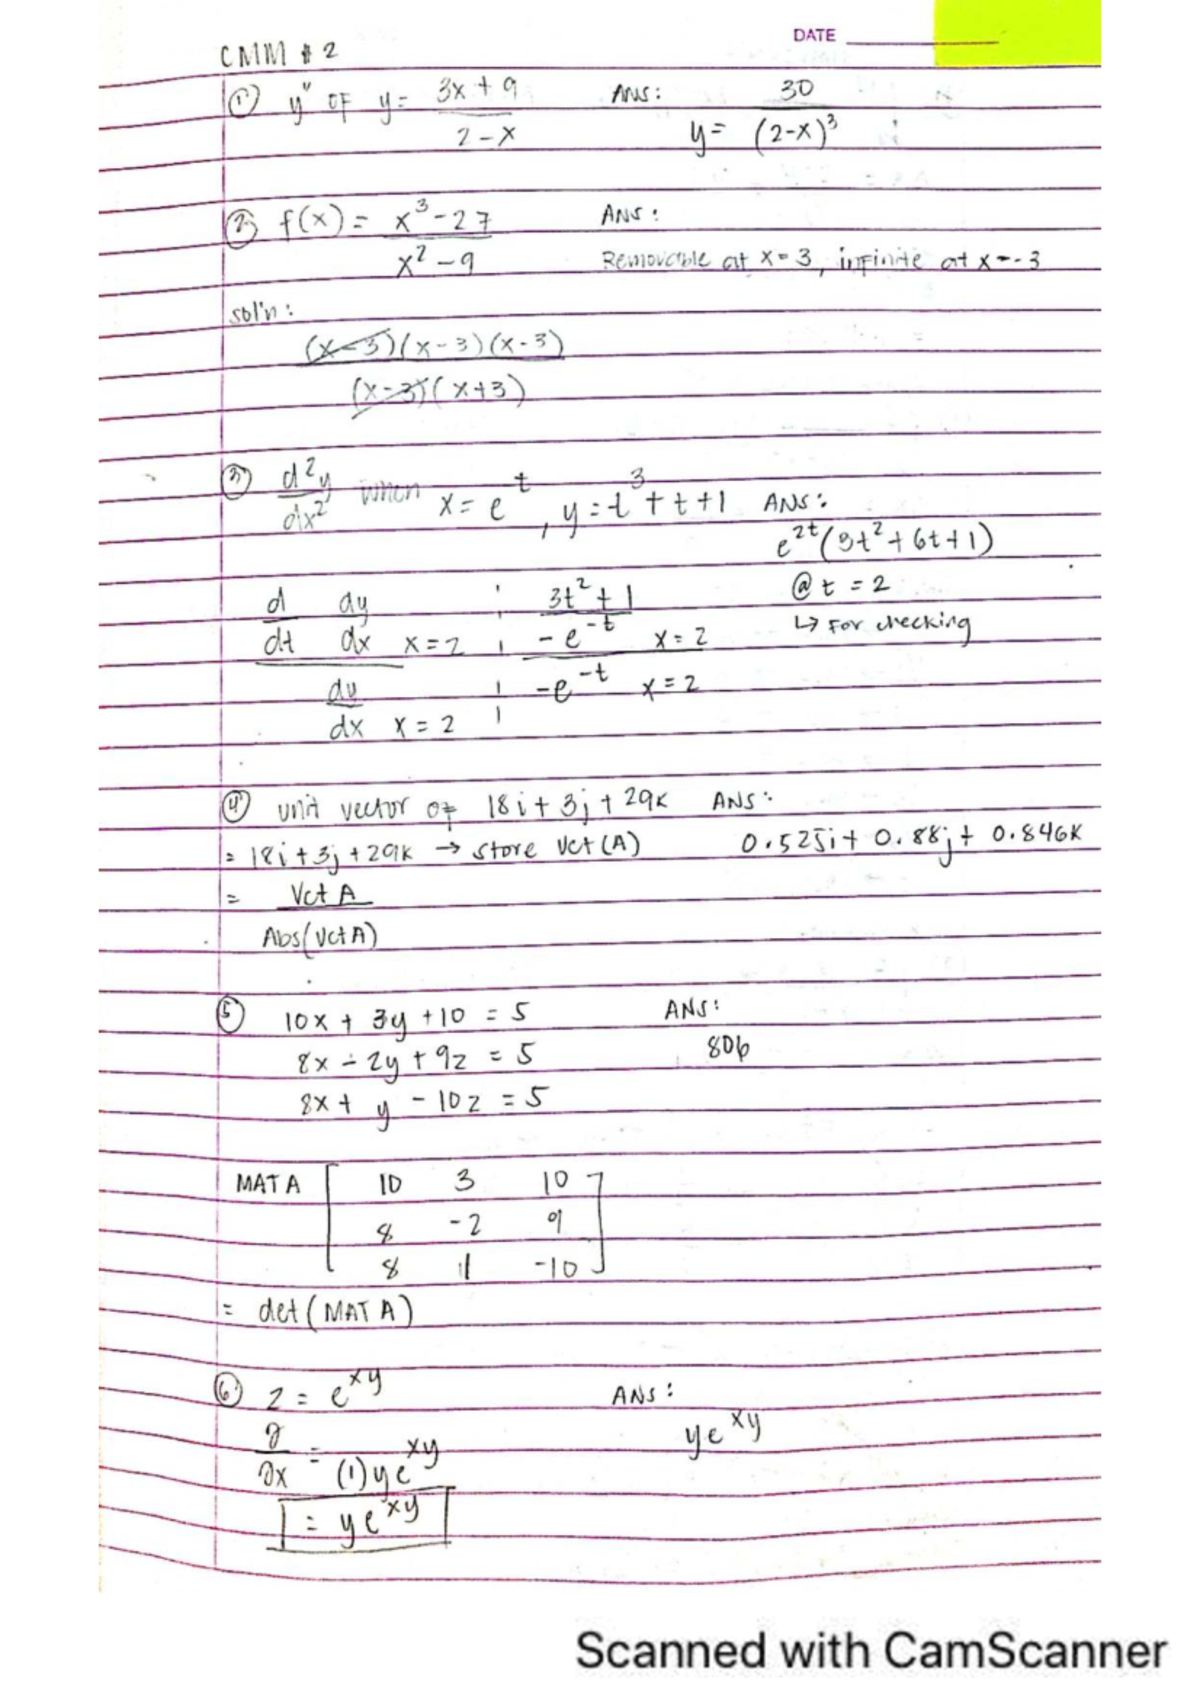 DATE
CMM # 2
① y'' OF y = 3x + 9 / 2 - x ANS: y = 30 / (2-x)³
② f(x) = x³ - 27 / x² - 9 ANS:
Removable at x = 3, infinite at x = -3
sol'n:
(x-3)(x-3)(x-3)
(x-3)(x+3)
③ d²y / dx² when x = e^t, y = t³ + t + 1 ANS:
e^2t (3t² + 6t + 1)
@ t = 2
↳ For checking
d dy ; 3t² + 1
dt dx x = 2 ; -e^-t x = 2
dy ; -e^-t x = 2
dx x = 2
④ unit vector of 18i + 3j + 29k ANS:
= 18i + 3j + 29k → store Vct (A) 0.525i + 0.88j + 0.846k
= Vct A
Abs(Vct A)
⑤ 10x + 3y + 10 = 5 ANS:
8x - 2y + 9z = 5 806
8x + y - 10z = 5
MAT A [ 10 3 10
8 -2 9
8 1 -10 ]
= det (MAT A)
⑥ z = e^xy ANS:
∂ / ∂x = (1) ye^xy ye^xy
= ye^xy
Scanned with CamScanner